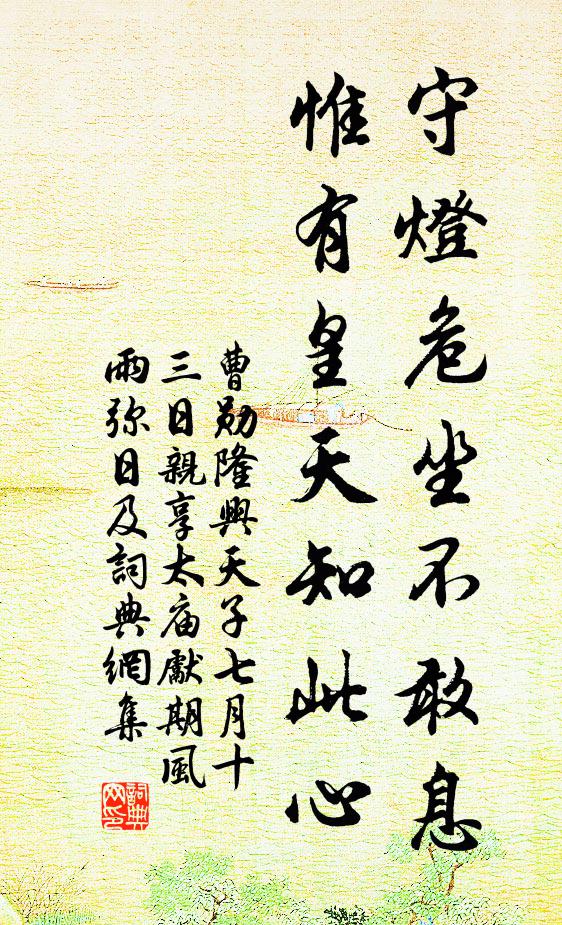 守燈危坐不敢息
惟有皇天知此心
曹勛隆興天子七月十
三日親享太庙獻期風
雨弥日及詞典網集
詞典
网印